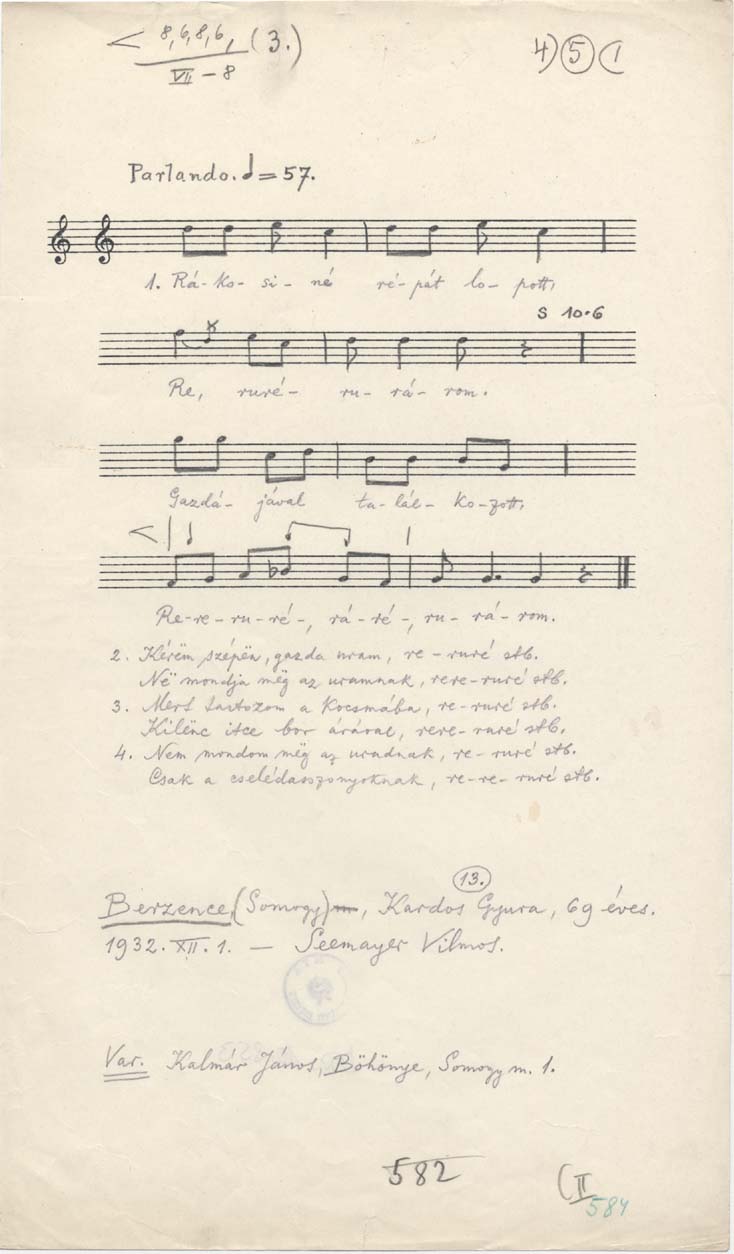 < 8,6,8,6, (3.)
VII – 8
4) 5 (1
Parlando. ♩ = 57.
1. Rá-ko-si-né ré-pát lo-pott,
S 10·6
Re, ruré-ru-rá-rom.
Gazdá-jával ta-lál-ko-zott,
<
Re-re-ru-ré-, rá-ré-, ru-rá-rom.
2. Kérëm szépën, gazda uram, re-ruré stb.
Në mondja mëg az uramnak, rere-ruré stb.
3. Mert tartozom a kocsmába, re-ruré stb.
Kilënc itce bor árával, rere-ruré stb.
4. Nem mondom mëg az uradnak, re-ruré stb.
Csak a cselédasszonyoknak, re-re-ruré stb.
13.
Berzence, (Somogy), Kardos Gyura, 69 éves.
1932. XII. 1. — Seemayer Vilmos.
Var. Kalmár János, Böhönye, Somogy m. 1.
582
(II
584